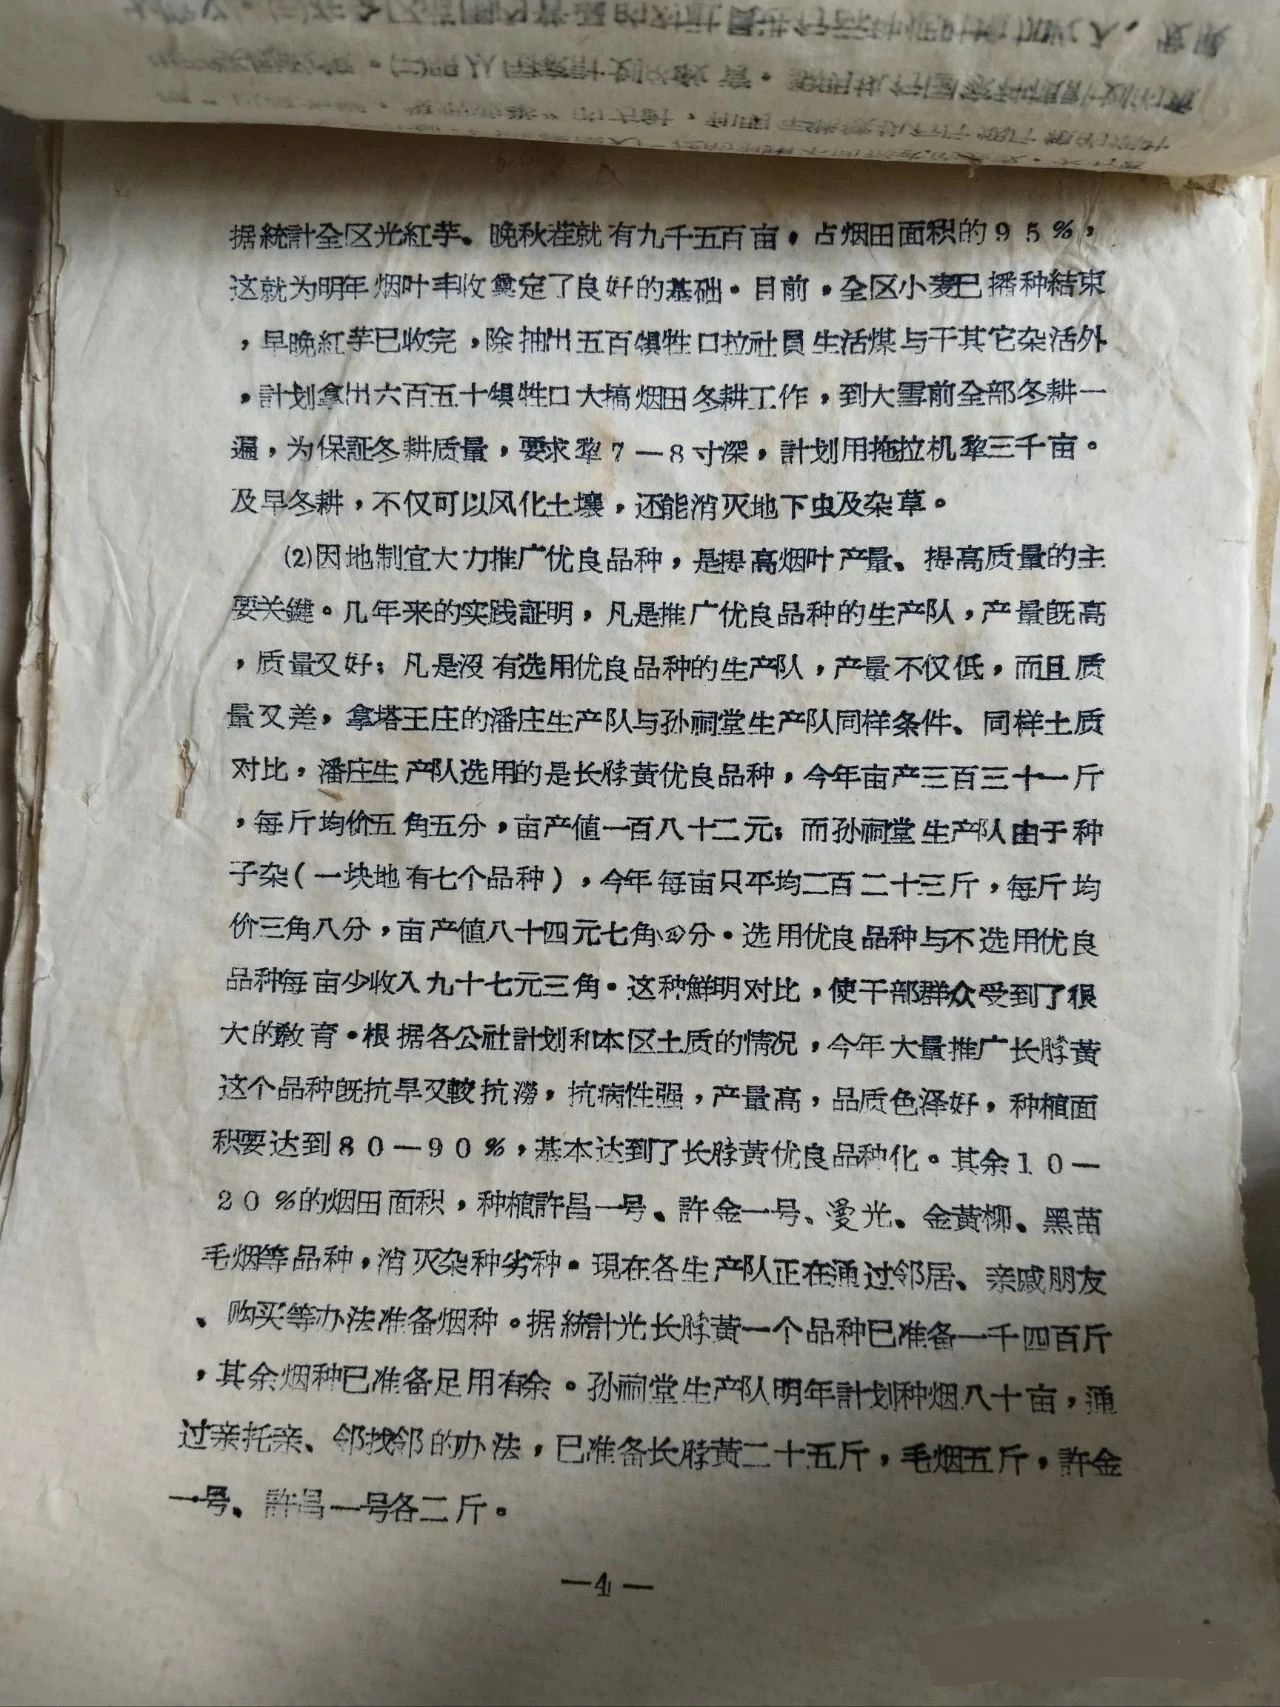 据統計全区光紅芋、晚秋茬就有九千五百亩，占烟田面积的95%，
这就为明年烟叶丰收奠定了良好的基础。目前，全区小麦已播种結束
，早晚紅芋已收完，除抽出五百犋牲口拉社員生活煤与干其它杂活外
，計划拿出六百五十犋牲口大搞烟田冬耕工作，到大雪前全部冬耕一
遍，为保証冬耕质量，要求犂7—8寸深，計划用拖拉机犂三千亩。
及早冬耕，不仅可以风化土壤，还能消灭地下虫及杂草。
(2)因地制宜大力推广优良品种，是提高烟叶产量、提高质量的主
要关鍵。几年来的实践証明，凡是推广优良品种的生产队，产量既高
，质量又好；凡是沒有选用优良品种的生产队，产量不仅低，而且质
量又差，拿塔王庄的潘庄生产队与孙祠堂生产队同样条件、同样土质
对比，潘庄生产队选用的是长脖黃优良品种，今年亩产三百三十一斤
，每斤均价五角五分，亩产値一百八十二元；而孙祠堂生产队由于种
子杂（一块地有七个品种），今年每亩只平均二百二十三斤，每斤均
价三角八分，亩产値八十四元七角四分。选用优良品种与不选用优良
品种每亩少收入九十七元三角。这种鮮明对比，使干部群众受到了很
大的敎育。根据各公社計划和本区土质的情况，今年大量推广长脖黃
这个品种既抗旱又較抗澇，抗病性强，产量高，品质色泽好，种植面
积要达到80—90%，基本达到了长脖黃优良品种化。其余10—
20%的烟田面积，种植許昌一号、許金一号、爱光、金黃柳、黑苗
毛烟等品种，消灭杂种劣种。現在各生产队正在通过邻居、亲戚朋友
、购买等办法准备烟种。据統計光长脖黃一个品种已准备一千四百斤
，其余烟种已准备足用有余。孙祠堂生产队明年計划种烟八十亩，通
过亲托亲、邻找邻的办法，已准备长脖黃二十五斤，毛烟五斤，許金
一号、許昌一号各二斤。
—4—